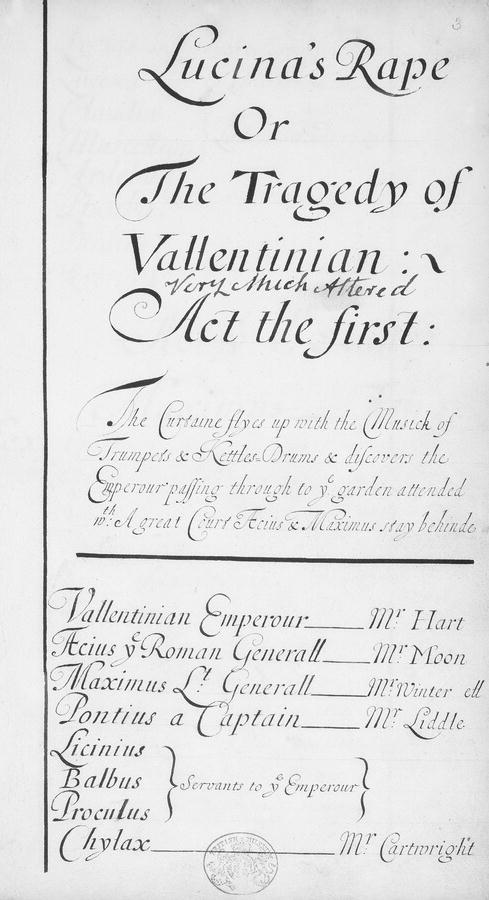 3
Lucina's Rape
Or
The Tragedy of
Vallentinian :~
Very Much Altered
Act the first:
The Curtaine flyes up with the Musick of
Trumpets & Kettles-Drums & discovers the
Emperour passing through to yᵉ garden attended
wᵗʰ. A great Court Æcius & Maximus stay behinde
Vallentinian Emperour — Mʳ Hart
Æcius yᵉ Roman Generall — Mʳ Moon
Maximus Lᵗ Generall — Mʳ Winter ell
Pontius a Captain — Mʳ Liddle
Licinius
Balbus } Servants to yᵉ Emperour }
Proculus
Chylax — Mʳ Cartwright